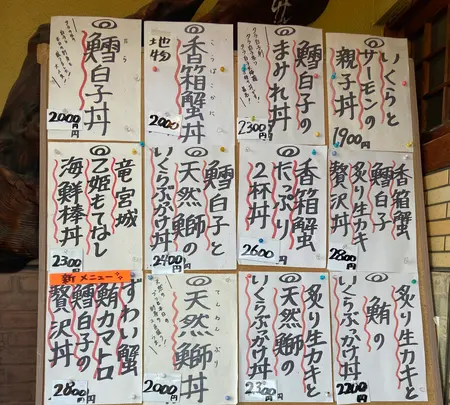 いくらと
サーモンの
親子丼
1900円
鱈白子の
まみれ丼
2300円
こうばこがに
香箱蟹丼
地物
2000円
たら
鱈白子丼
2000円
香箱蟹
鱈白子
炙り生カキ
贅沢丼
2800円
香箱蟹
たっぷり
2杯丼
2600円
鱈白子と
天然鰤の
いくらぶっかけ丼
2400円
竜宮城
乙姫もてなし
海鮮棒丼
2300円
炙り生カキと
鮪の
いくらぶっかけ丼
2200円
炙り生カキと
天然鰤の
いくらぶっかけ丼
2300円
てんねんぶり
天然鰤丼
2000円
新メニュー
ずわい蟹
鮪カマトロ
鱈白子の
贅沢丼
2800円